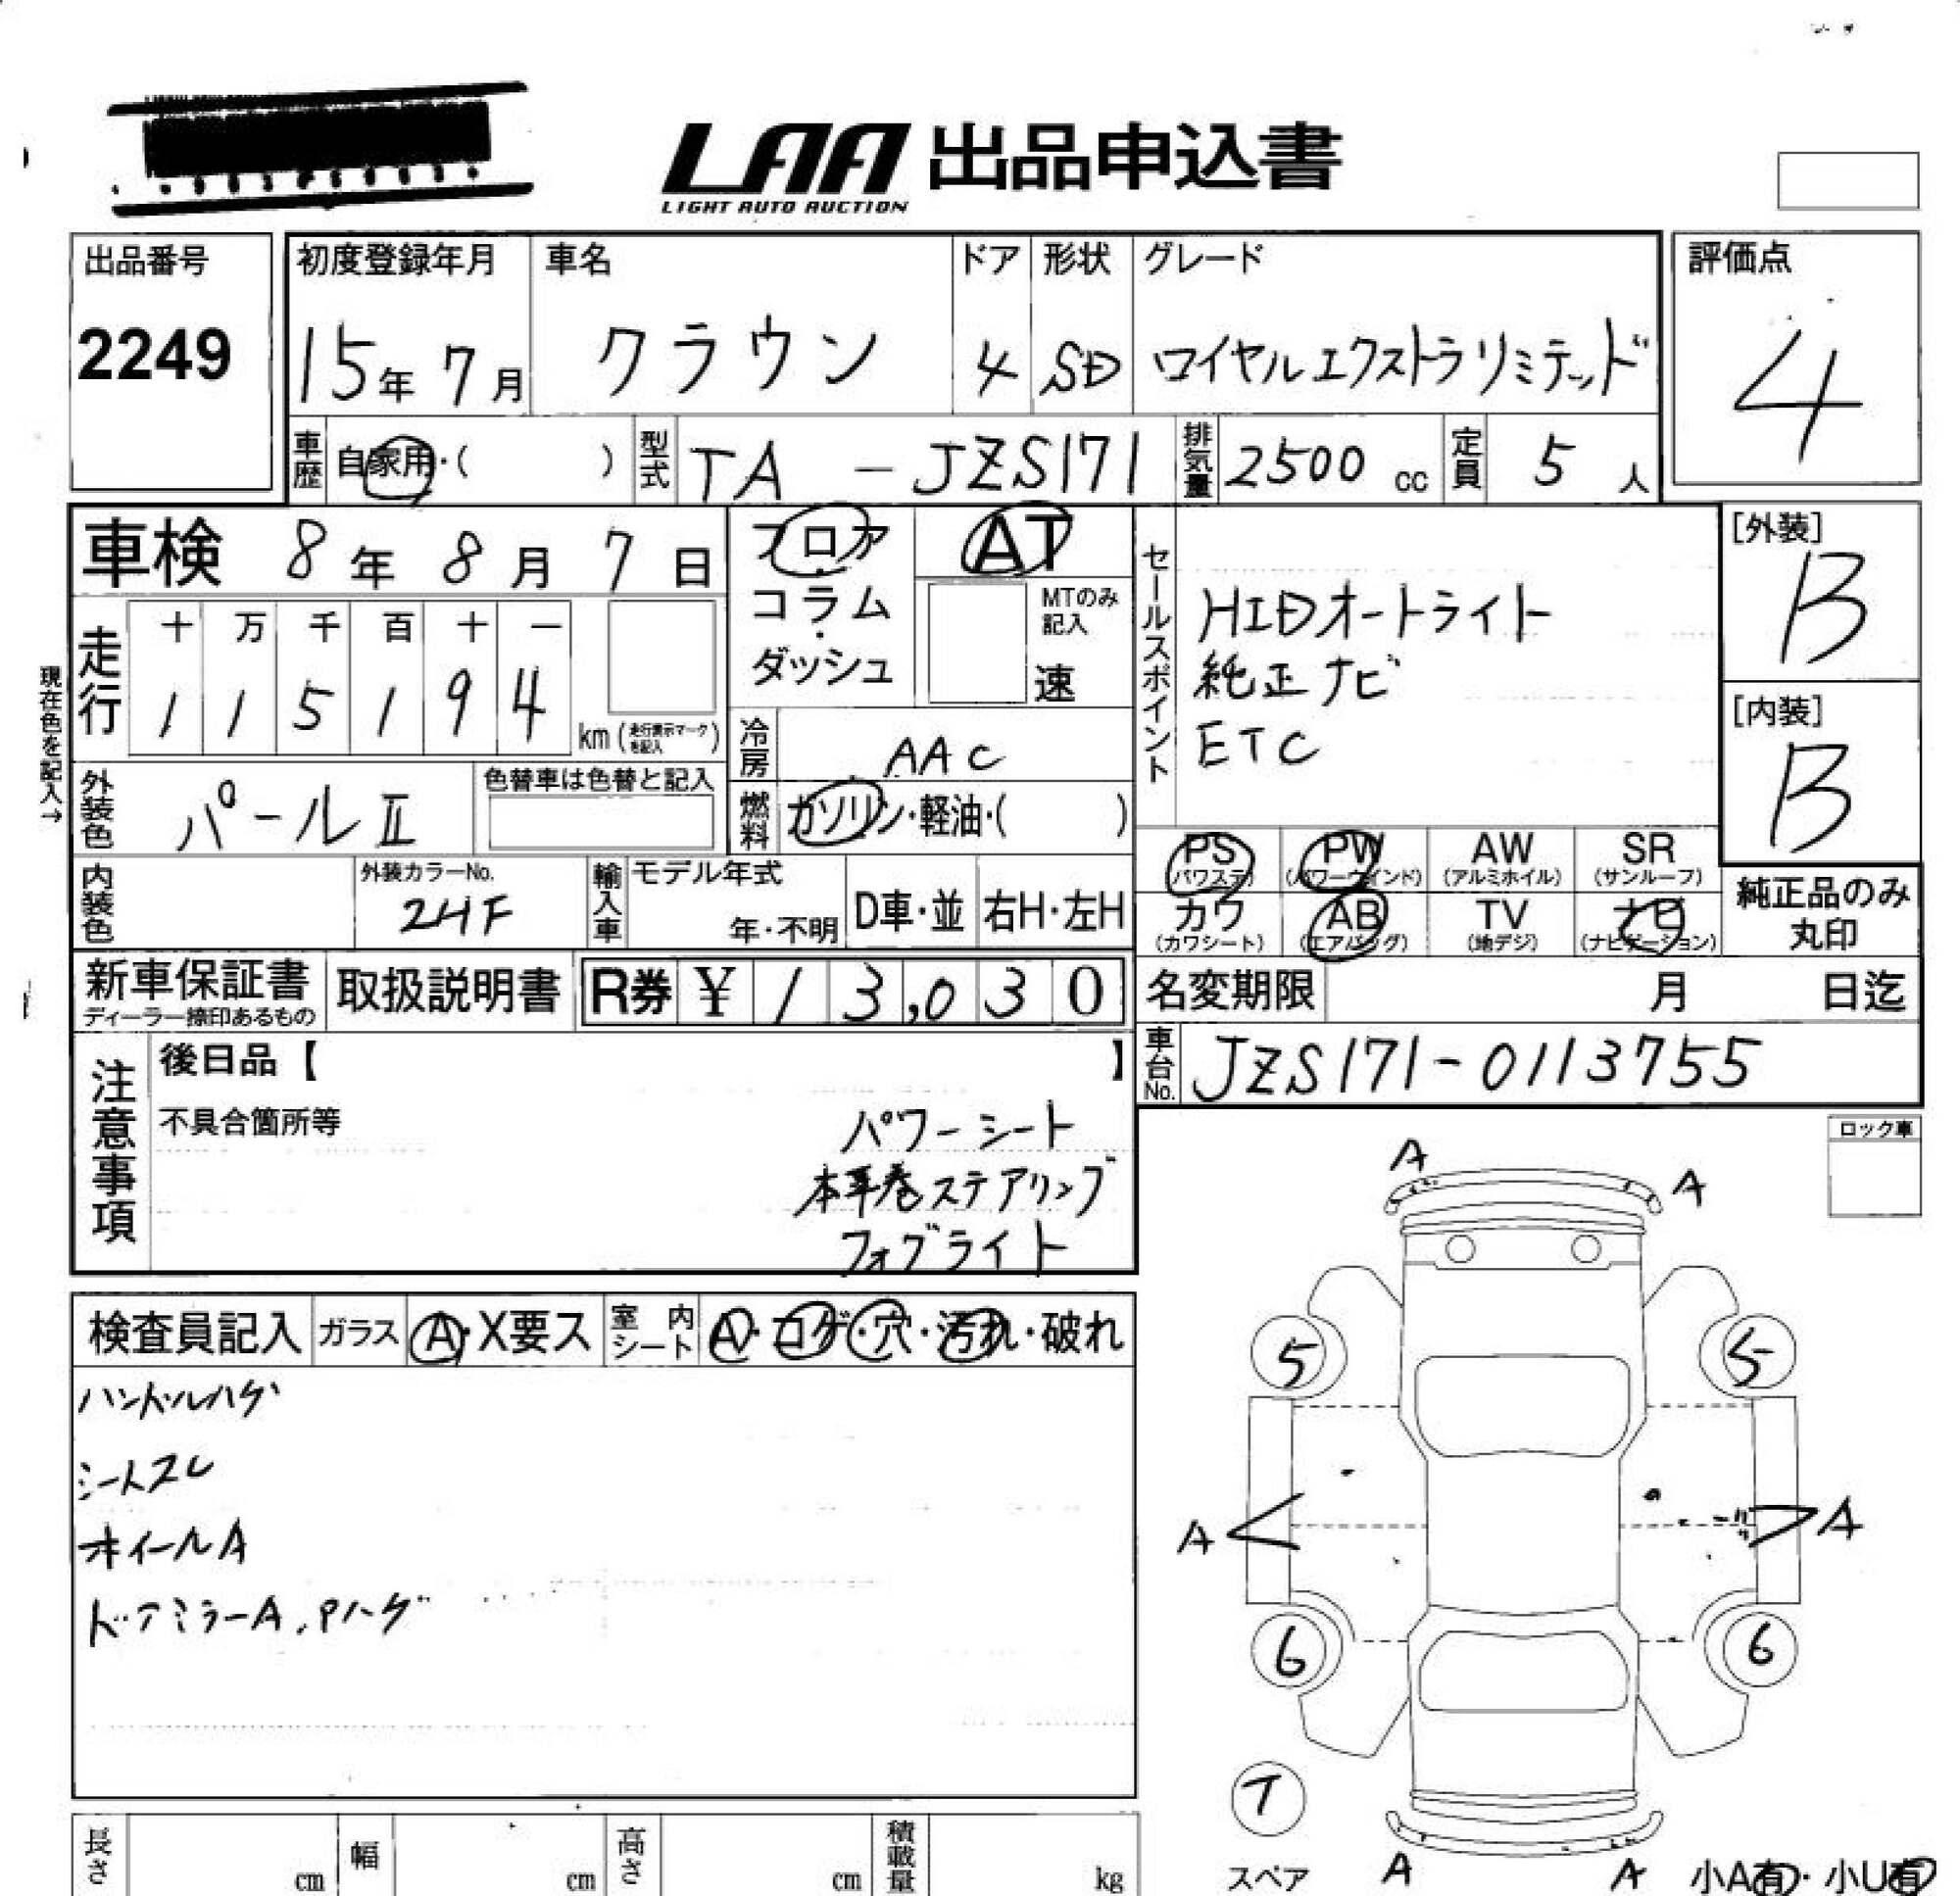 LAA 出品申込書
LIGHT AUTO AUCTION
出品番号
2249
初度登録年月
15年 7月
車名
クラウン
ドア
4
形状
SD
グレード
ロイヤルエクストラリミテッド
評価点
4
車歴
自家用・( )
型式
TA - JZS171
排気量
2500 cc
定員
5 人
車検 8年 8月 7日
フロア
・
コラム
・
ダッシュ
AT
MTのみ記入
速
セールスポイント
HIDオートライト
純正ナビ
ETC
[外装]
B
[内装]
B
現在色を記入→
走行
十 万 千 百 十 一
1 1 5 1 9 4
km (走行表示マークを記入)
冷房
AAC
外装色
パールⅡ
色替車は色替と記入
燃料
ガソリン・軽油・( )
PS PW AW SR
(パワステ) (パワーウインド) (アルミホイル) (サンルーフ)
カワ AB TV ナビ
(カワシート) (エアバッグ) (地デジ) (ナビゲーション)
純正品のみ
丸印
内装色
外装カラーNo.
24F
輸入車
モデル年式
年・不明
D車・並
右H・左H
新車保証書
ディーラー捺印あるもの
取扱説明書
R券 ¥ 13,030
名変期限 月 日迄
車台No.
JZS171-0113755
注意事項
後日品【 】
不具合箇所等
パワーシート
本革巻ステアリング
フォグライト
ロック車
検査員記入
ガラス
A・X要ス
室内シート
A・コゲ・穴・汚れ・破れ
ハンドルハゲ
シートスレ
ホイールA
ドアミラーA.Pハゲ
A
A
5 5
A A
6 6
T
スペア
A A
小A有・小U有
長さ cm
幅 cm
高さ cm
積載量 kg